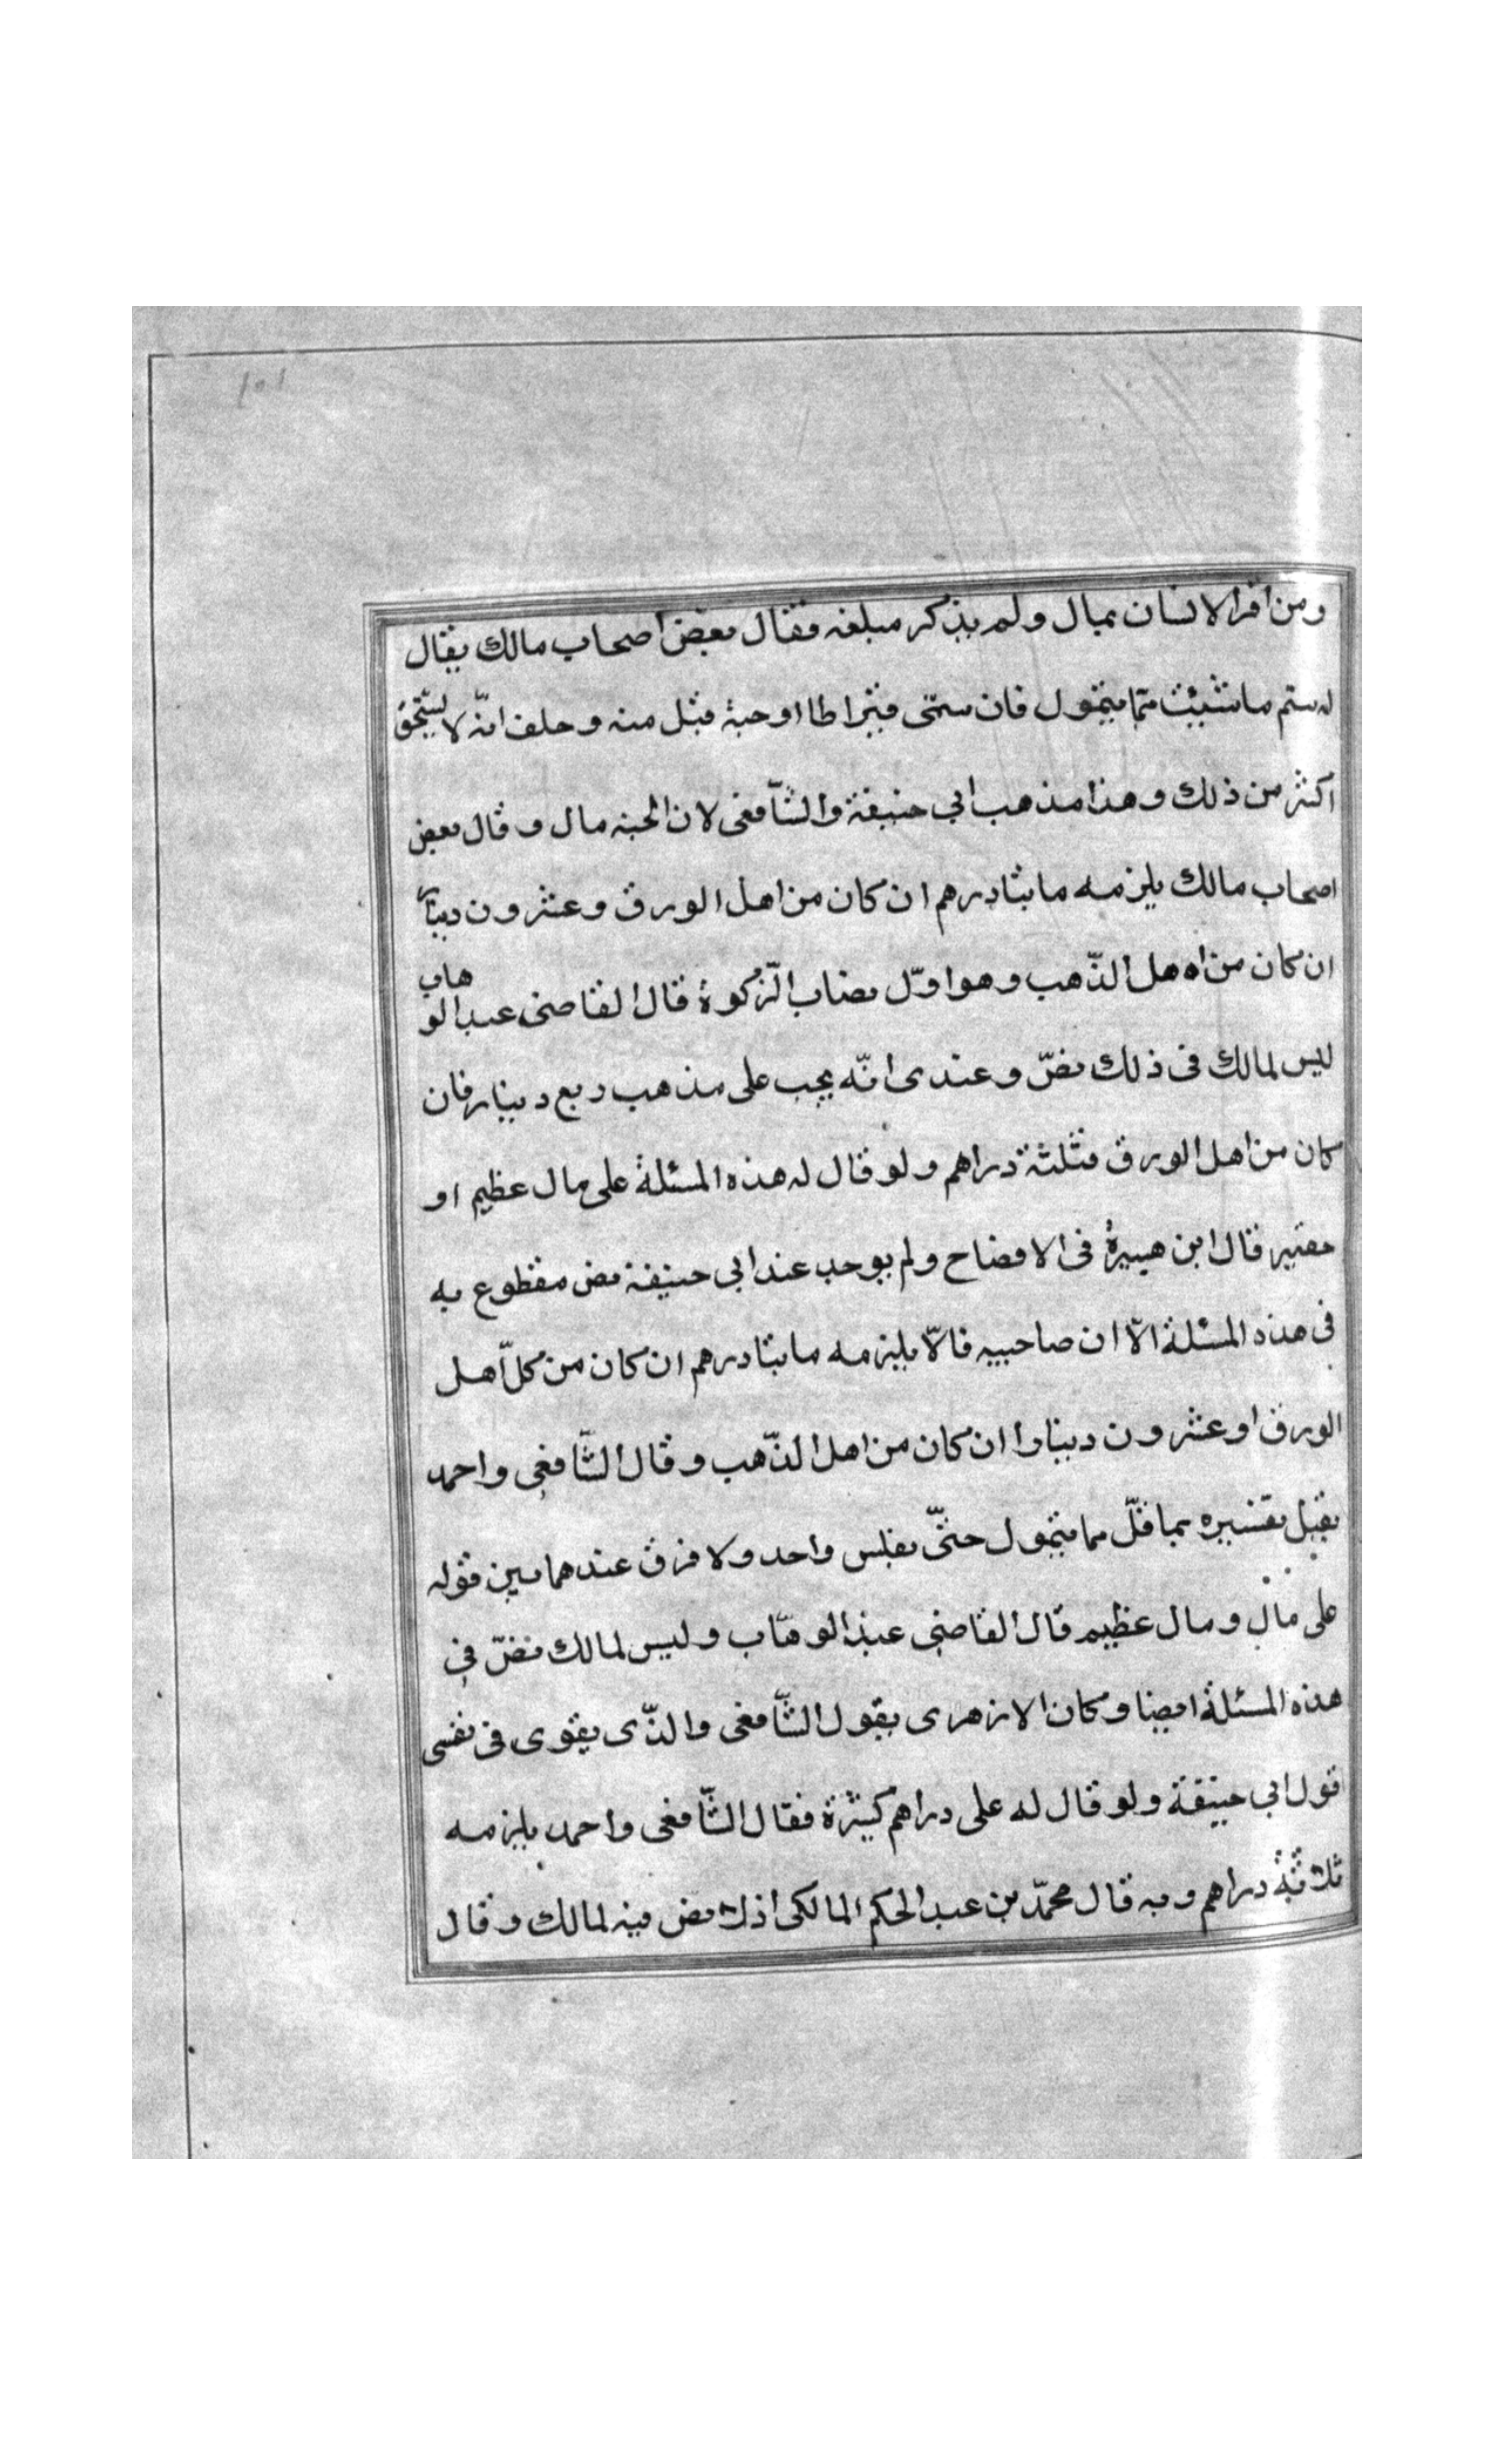 ١٥١
ومن اقر الانسان بمال ولم يذكر مبلغه فقال بعض اصحاب مالك يقال
له ستم ما شيئت مما يتمول فان ستمى قيراطا او حبة قبل منه وحلف انّه لا يستحق
اكثر من ذلك وهذا مذهب ابي حنيفة والشّافعى لان الحبه مال وقال بعض
اصحاب مالك يلزمه مايتا درهم ان كان من اهل الورق وعشرون دينارا
ان كان من اه هل الذّهب وهو اوّل نصاب الزّكوة قال القاضى عبد الوهاب
ليس لمالك فى ذلك نصّ وعندى انّه يجب على مذهب ربع دينار فان
كان من اهل الورق فثلثة دراهم ولو قال له هذه المسئلة على مال عظيم او
حقير قال ابن هبيرة فى الافصاح ولم يوجب عند ابى حنيفة نص مقطوع به
فى هذه المسئلة الّا ان صاحبيه قالا يلزمه مايتا درهم ان كان من كلّ اهل
الورق او عشرون دينارا ان كان من اهل الذّهب وقال الشّافعى واحمد
يقبل تفسيره بما قلّ مما يتمول حتّى بفلس واحد ولا فرق عندهما بين قوله
على مال ومال عظيم قال القاضى عبد الوهّاب وليس لمالك نصّ فى
هذه المسئلة ايضا وكان الازهرى يقول الشّافعى والذّى يقوى فى نفسى
قول ابي حنيفة ولو قال له على دراهم كثيرة فقال الشّافعى واحمد يلزمه
ثلاثة دراهم وبه قال محمّد بن عبد الحكم المالكى اذ لا نص فيه لمالك وقال